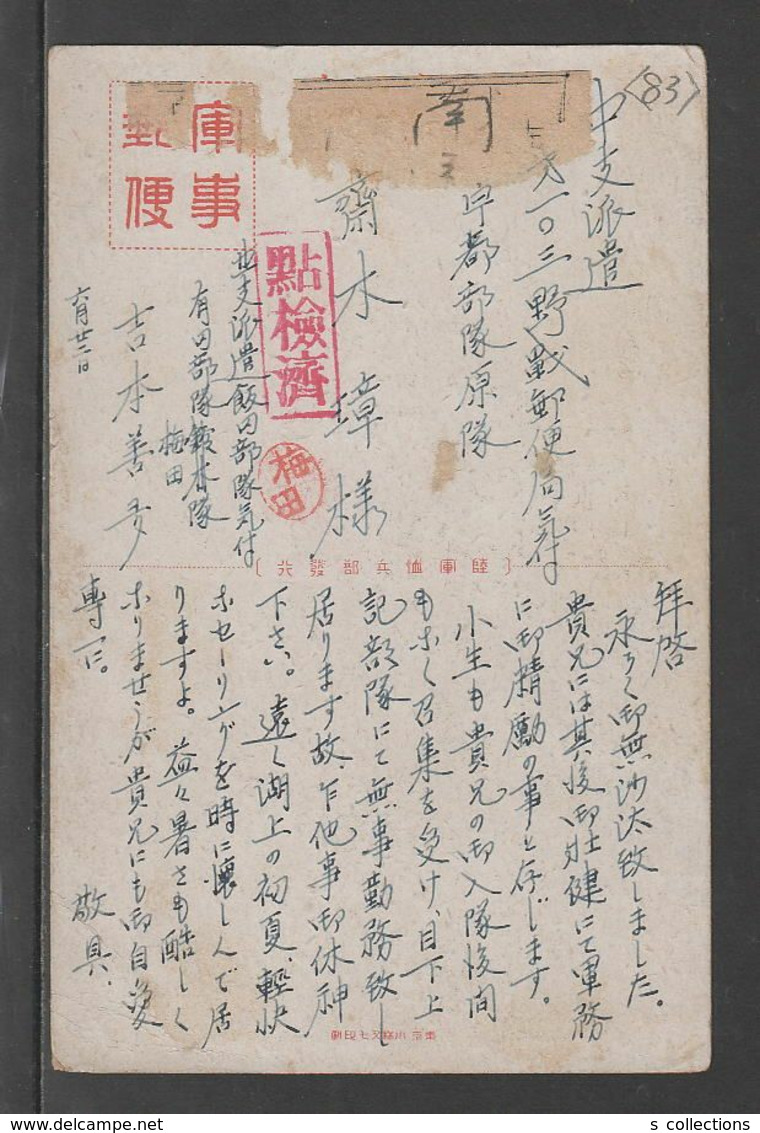 <83>
中支派遣
第一〇三野戦郵便局気付
宇都部隊原隊
齋木璋様
南
軍事
郵便
點檢濟
梅田
並支派遣飯田部隊気付
有田部隊 本隊
梅田
吉本善
六月廿二日
陸軍恤兵部發行
拜啓
永らく御無沙汰致しました。
貴兄には其後御壮健にて軍務
に御精励の事と存じます。
小生も貴兄の御入隊後間
もなく召集を受け、目下上
記部隊にて無事勤務致し
居ります故、乍他事御休神
下さい。遠く湖上の初夏、輕快
なセーリングを時に懐しんで居
りますよ。益々暑さも酷しく
なりませうが貴兄にも御自愛
専一に。
敬具、
s collections
www.delcampe.net